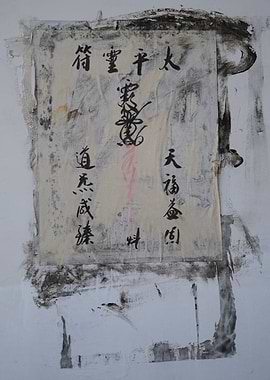 太平靈符
天福益周
道炁咸臻